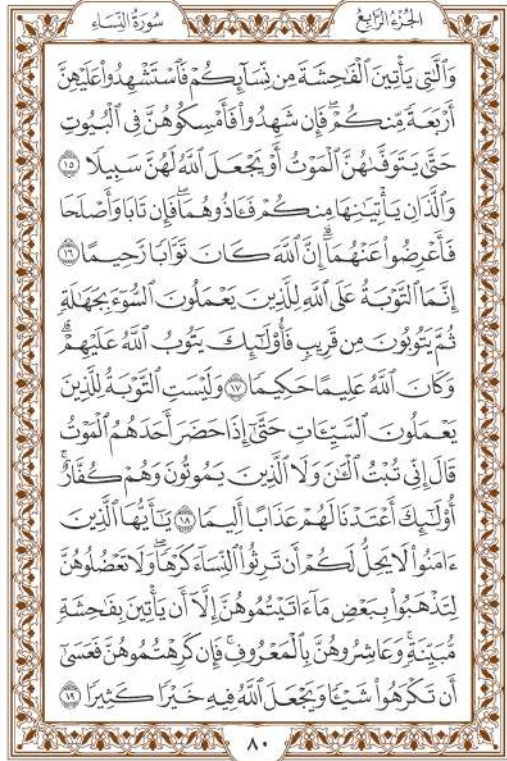 الجُزْءُ الرَّابِعُ
سُورَةُ النِّسَاءِ
وَٱلَّٰتِي يَأۡتِينَ ٱلۡفَٰحِشَةَ مِن نِّسَآئِكُمۡ فَٱسۡتَشۡهِدُواْ عَلَيۡهِنَّ
أَرۡبَعَةٗ مِّنكُمۡۖ فَإِن شَهِدُواْ فَأَمۡسِكُوهُنَّ فِي ٱلۡبُيُوتِ
حَتَّىٰ يَتَوَفَّىٰهُنَّ ٱلۡمَوۡتُ أَوۡ يَجۡعَلَ ٱللَّهُ لَهُنَّ سَبِيلٗا ١٥
وَٱلَّذَانِ يَأۡتِيَٰنِهَا مِنكُمۡ فَـَٔاذُوهُمَاۖ فَإِن تَابَا وَأَصۡلَحَا
فَأَعۡرِضُواْ عَنۡهُمَآۗ إِنَّ ٱللَّهَ كَانَ تَوَّابٗا رَّحِيمًا ١٦
إِنَّمَا ٱلتَّوۡبَةُ عَلَى ٱللَّهِ لِلَّذِينَ يَعۡمَلُونَ ٱلسُّوٓءَ بِجَهَٰلَةٖ
ثُمَّ يَتُوبُونَ مِن قَرِيبٖ فَأُوْلَٰٓئِكَ يَتُوبُ ٱللَّهُ عَلَيۡهِمۡۗ
وَكَانَ ٱللَّهُ عَلِيمًا حَكِيمٗا ١٧ وَلَيۡسَتِ ٱلتَّوۡبَةُ لِلَّذِينَ
يَعۡمَلُونَ ٱلسَّيِّـَٔاتِ حَتَّىٰٓ إِذَا حَضَرَ أَحَدَهُمُ ٱلۡمَوۡتُ
قَالَ إِنِّي تُبۡتُ ٱلۡـَٰٔنَ وَلَا ٱلَّذِينَ يَمُوتُونَ وَهُمۡ كُفَّارٌۚ
أُوْلَٰٓئِكَ أَعۡتَدۡنَا لَهُمۡ عَذَابًا أَلِيمٗا ١٨ يَٰٓأَيُّهَا ٱلَّذِينَ
ءَامَنُواْ لَا يَحِلُّ لَكُمۡ أَن تَرِثُواْ ٱلنِّسَآءَ كَرۡهٗاۖ وَلَا تَعۡضُلُوهُنَّ
لِتَذۡهَبُواْ بِبَعۡضِ مَآ ءَاتَيۡتُمُوهُنَّ إِلَّآ أَن يَأۡتِينَ بِفَٰحِشَةٖ
مُّبَيِّنَةٖۚ وَعَاشِرُوهُنَّ بِٱلۡمَعۡرُوفِۚ فَإِن كَرِهۡتُمُوهُنَّ فَعَسَىٰٓ
أَن تَكۡرَهُواْ شَيۡـٔٗا وَيَجۡعَلَ ٱللَّهُ فِيهِ خَيۡرٗا كَثِيرٗا ١٩
٨٠